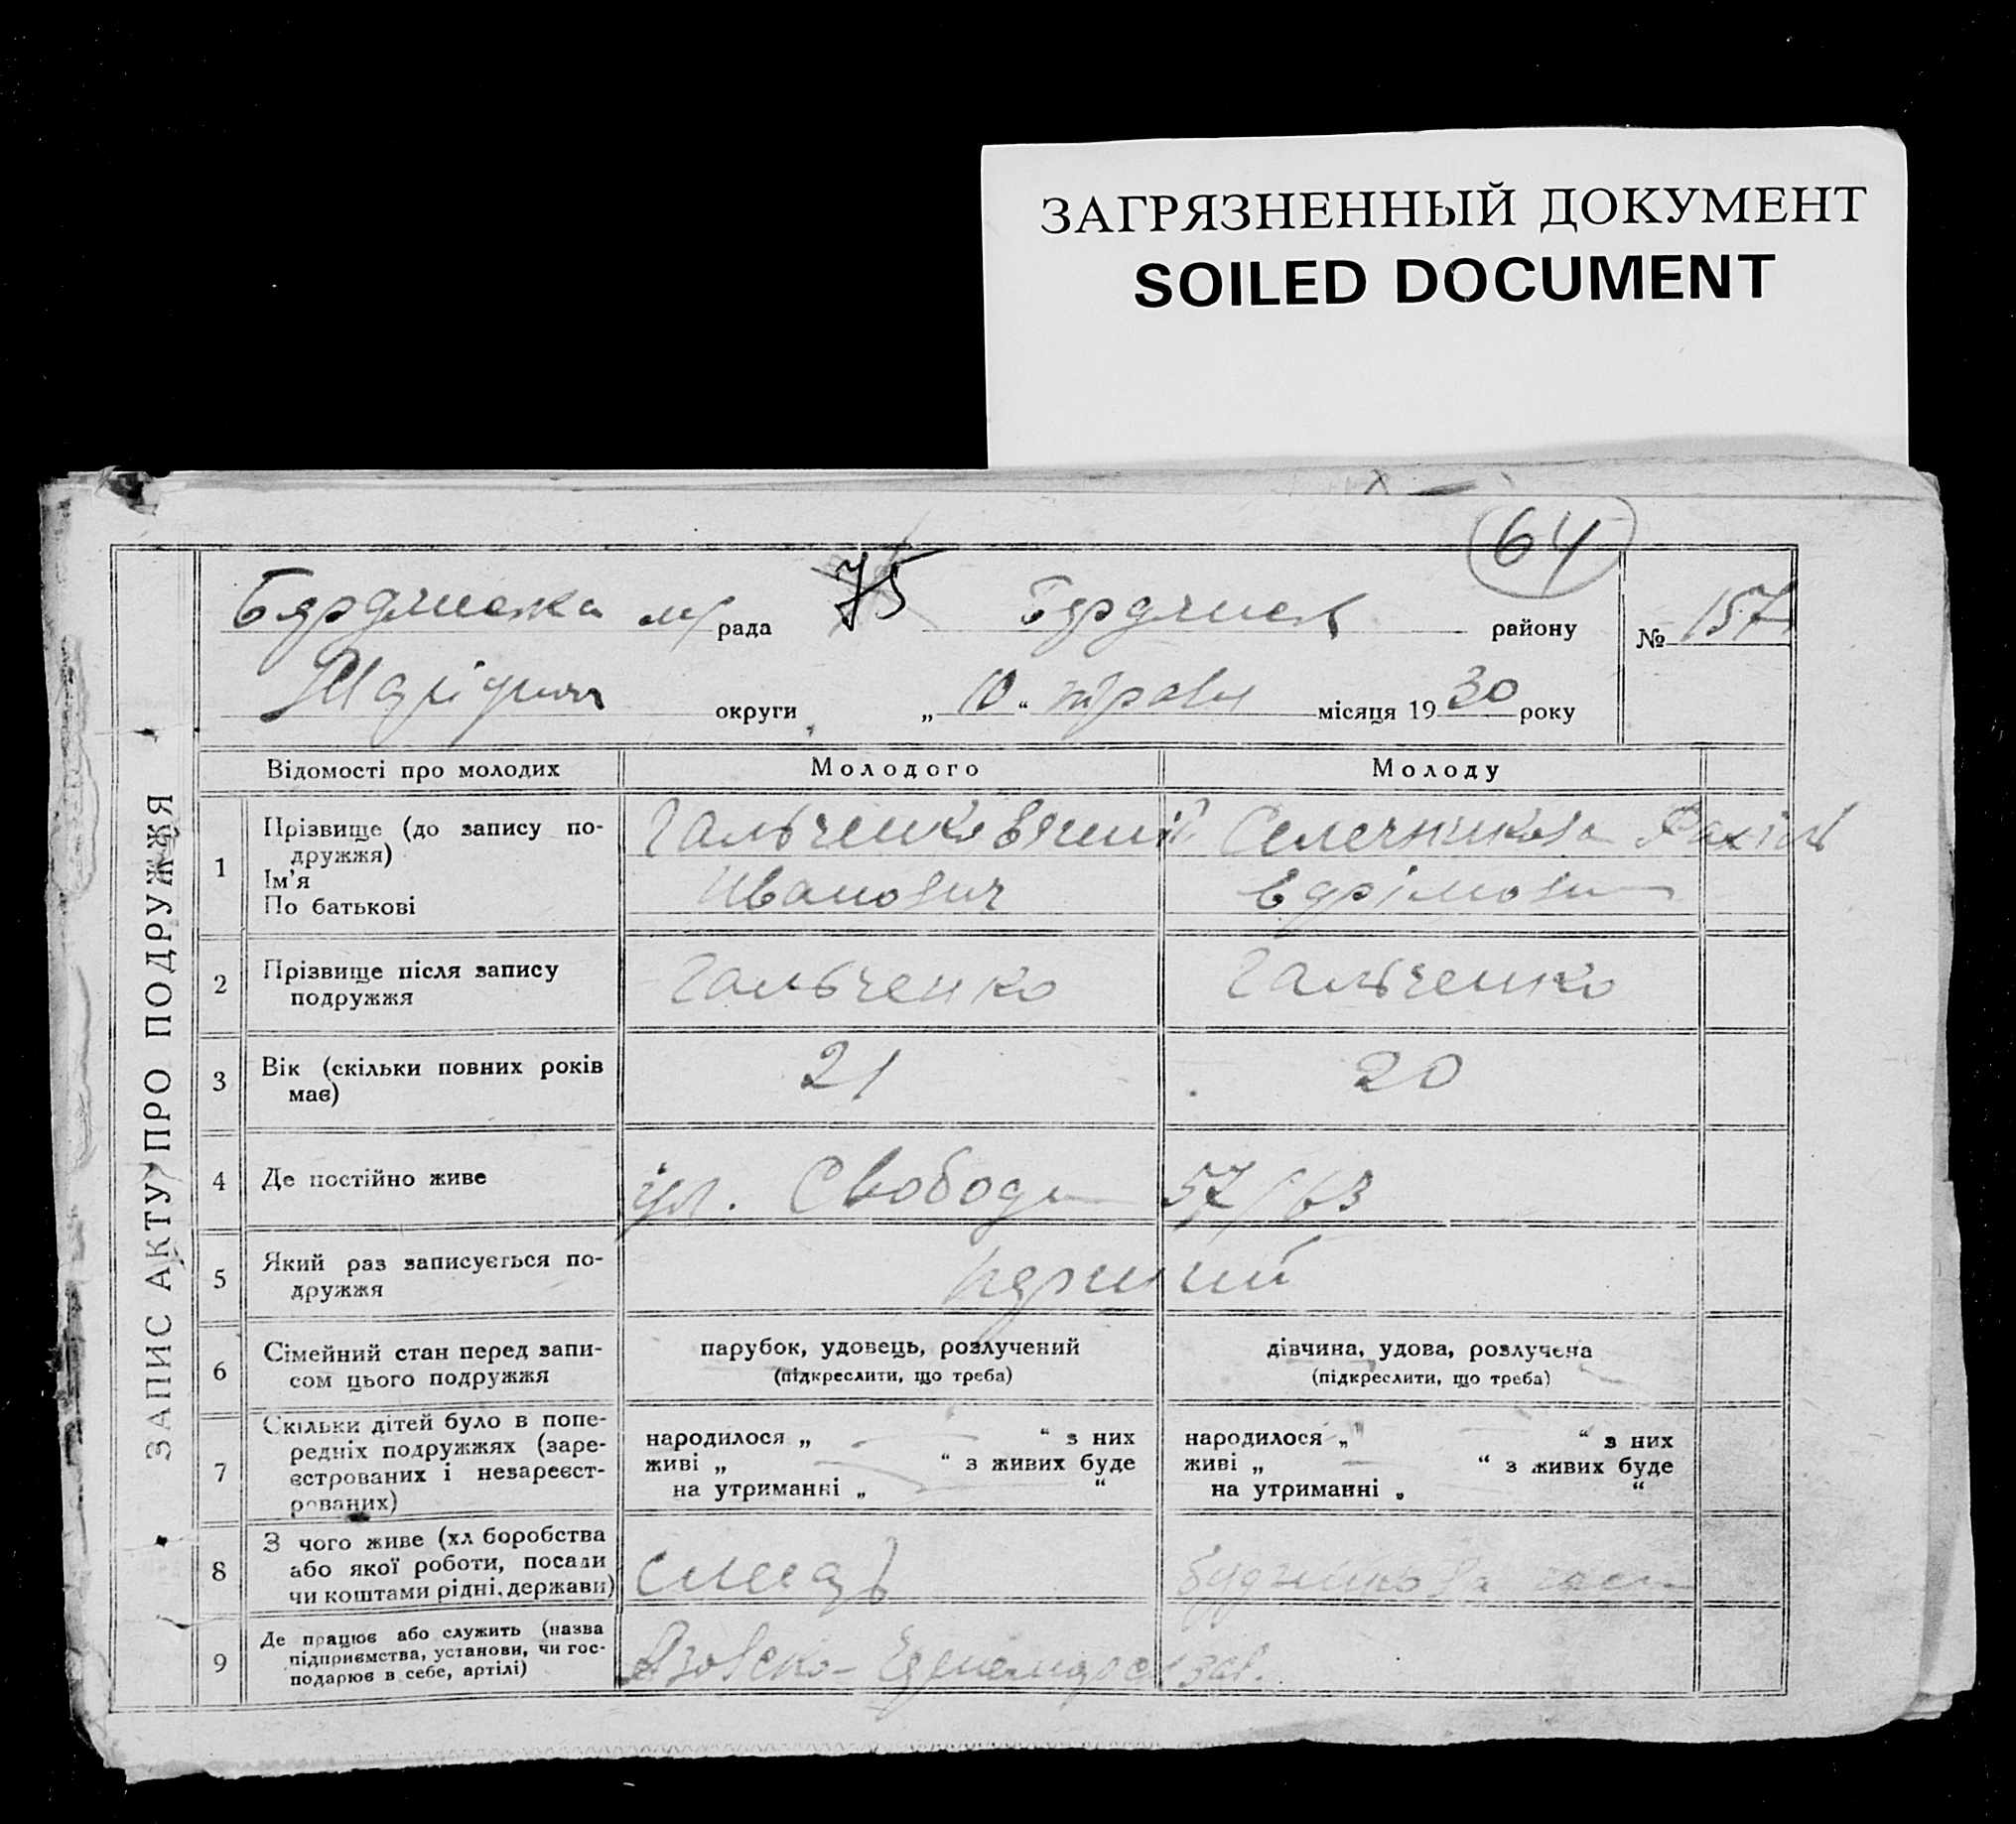 ЗАГРЯЗНЕННЫЙ ДОКУМЕНТ
SOILED DOCUMENT
64
75
рада
району
№ 157
округи „ 10 “ місяця 1930 року
ЗАПИС АКТУ ПРО ПОДРУЖЖЯ
Відомості про молодих
Молодого
Молоду
1
Прізвище (до запису по-
дружжя)
Ім’я
По батькові
Гальченко
Иванович
2
Прізвище після запису
подружжя
Гальченко
Гальченко
3
Вік (скільки повних років
має)
21
20
4
Де постійно живе
ул. Свободы 57/63
5
Який раз записується по-
дружжя
перший
6
Сімейний стан перед запи-
сом цього подружжя
парубок, удовець, розлучений
(підкреслити, що треба)
дівчина, удова, розлучена
(підкреслити, що треба)
7
Скільки дітей було в попе-
редніх подружжях (заре-
єстрованих і незареєст-
рованих)
народилося „ “ з них
живі „ “ з живих буде
на утриманні „ “
народилося „ “ з них
живі „ “ з живих буде
на утриманні „ “
8
З чого живе (хл боробства
або якої роботи, посади
чи коштами рідні, держави)
9
Де працює або служить (назва
підприємства, установи, чи гос-
подарює в себе, артілі)